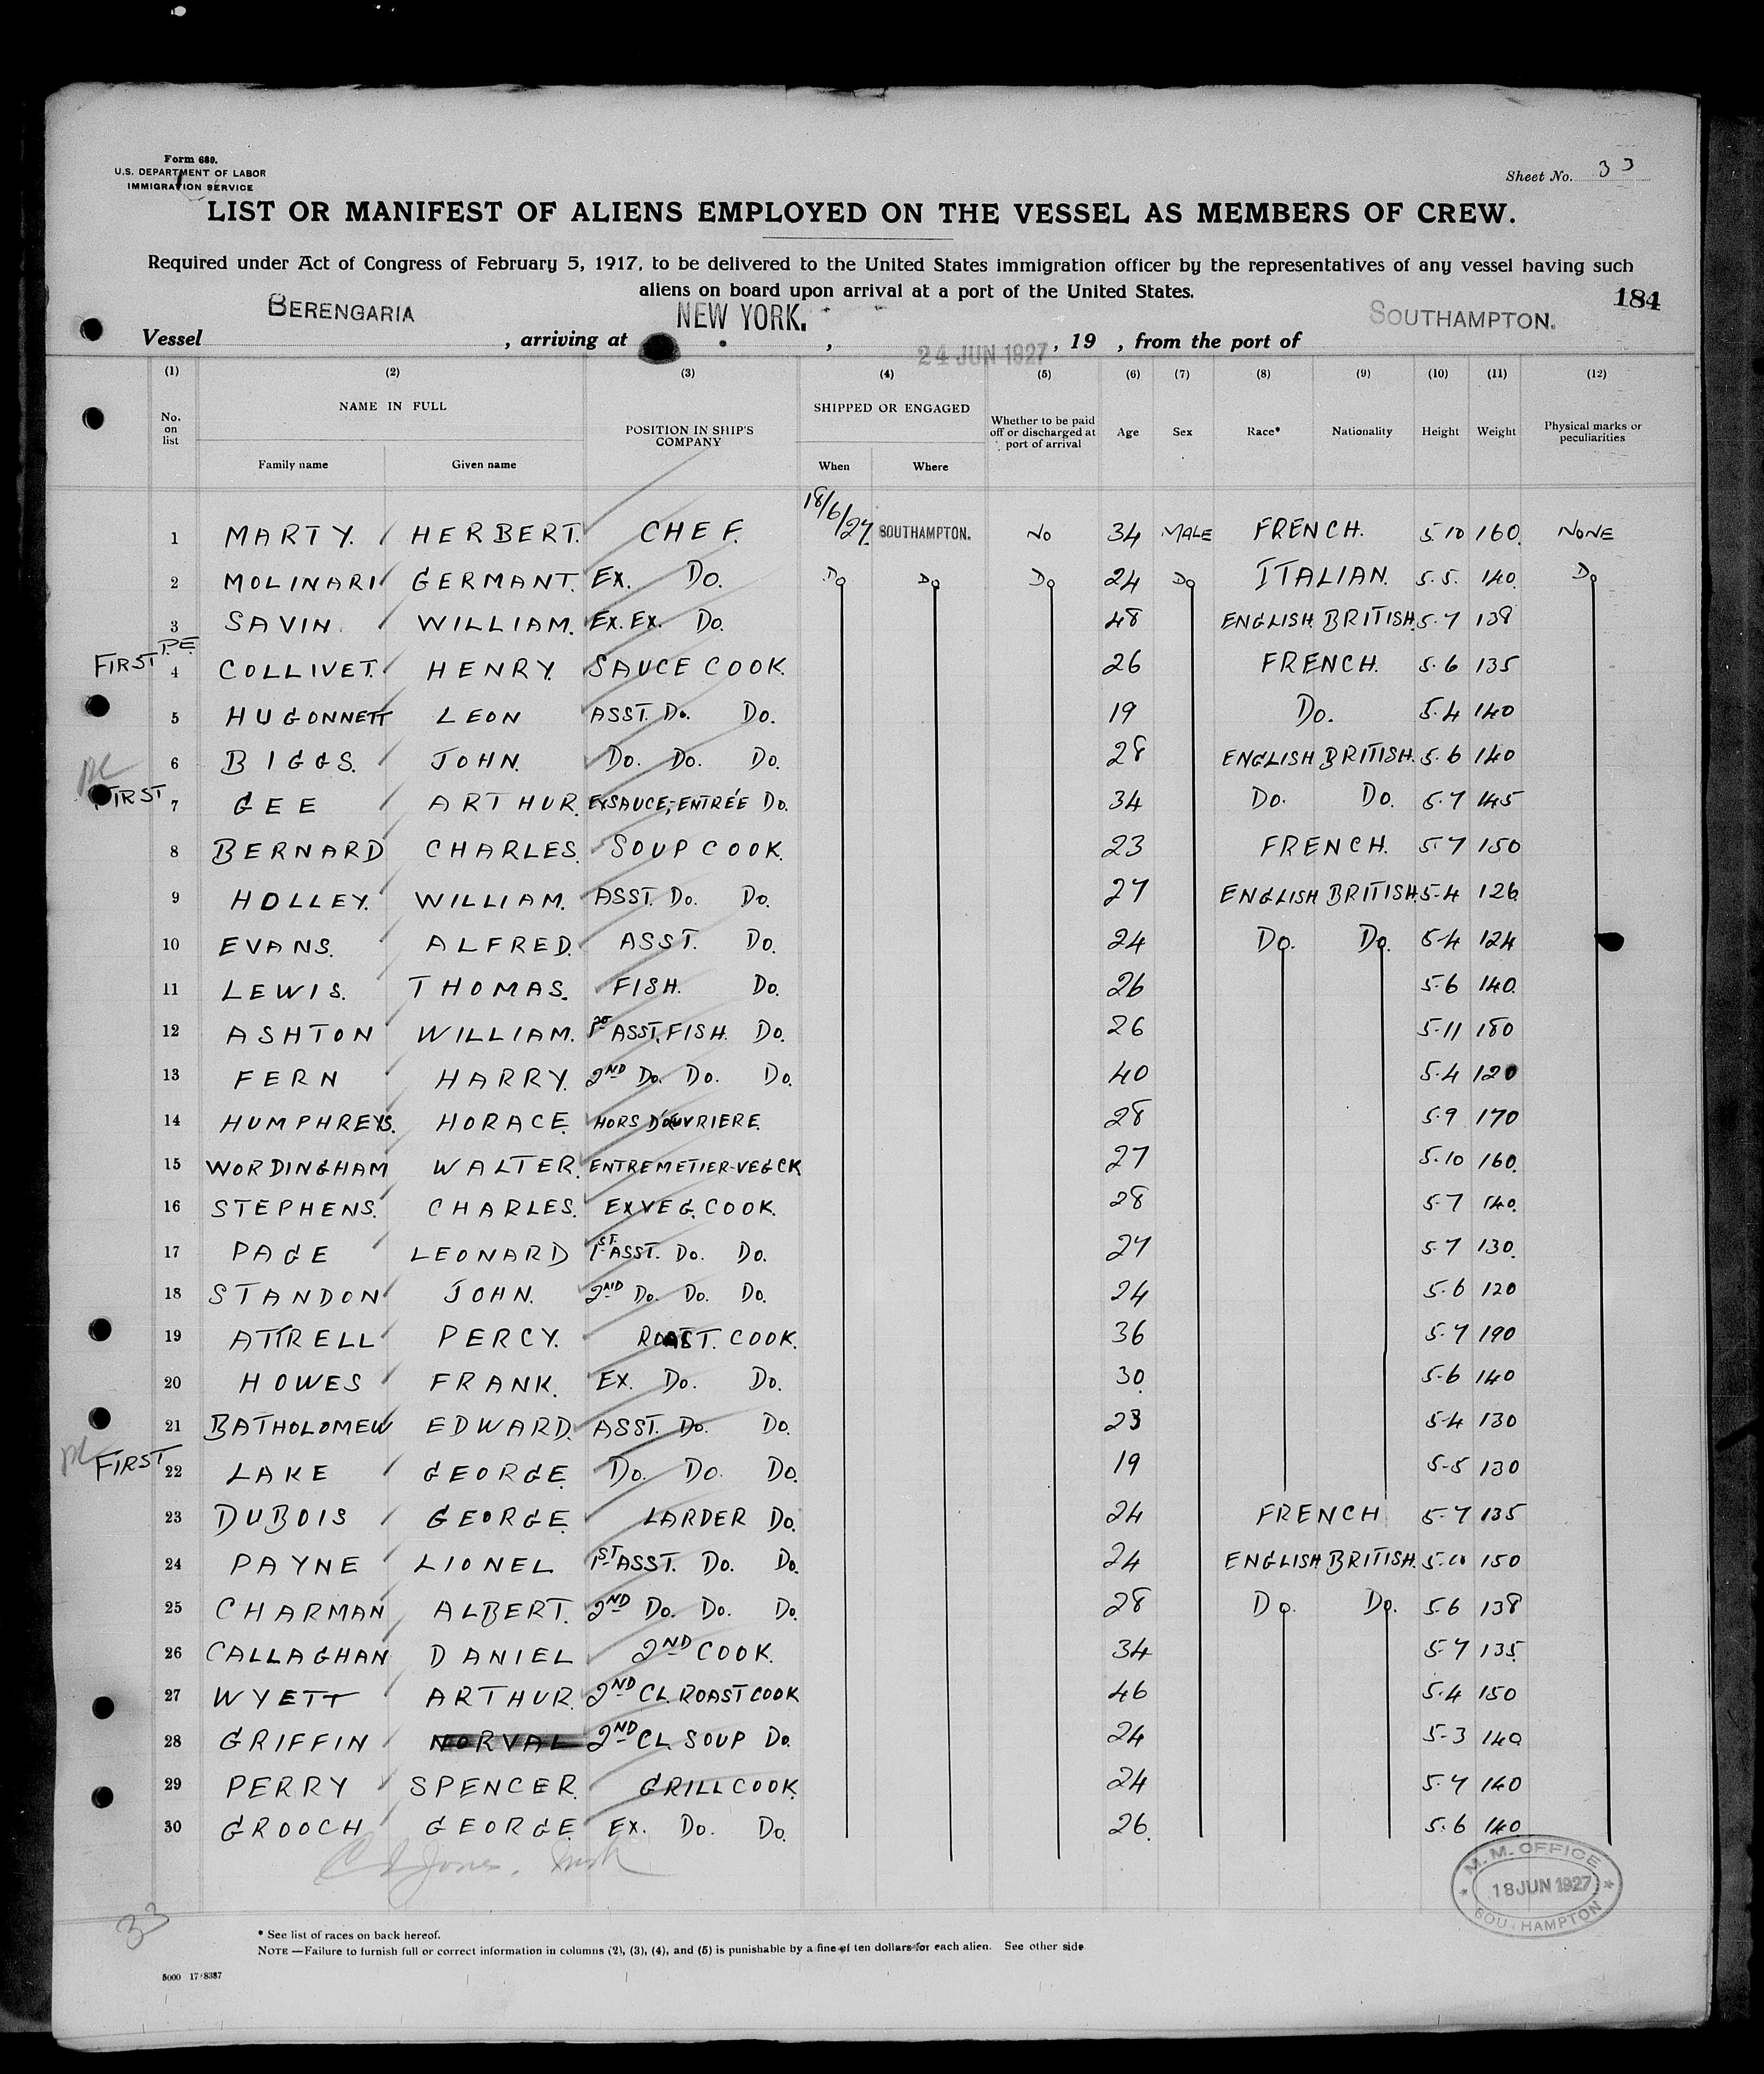 Form 680.
U.S. DEPARTMENT OF LABOR
IMMIGRATION SERVICE
Sheet No. 33
LIST OR MANIFEST OF ALIENS EMPLOYED ON THE VESSEL AS MEMBERS OF CREW.
Required under Act of Congress of February 5, 1917, to be delivered to the United States immigration officer by the representatives of any vessel having such
aliens on board upon arrival at a port of the United States.
184
Vessel BERENGARIA, arriving at NEW YORK., 24 JUN 1927, 19 , from the port of SOUTHAMPTON.
(1) (2) (3) (4) (5) (6) (7) (8) (9) (10) (11) (12)
No. on list NAME IN FULL POSITION IN SHIP'S COMPANY SHIPPED OR ENGAGED Whether to be paid off or discharged at port of arrival Age Sex Race* Nationality Height Weight Physical marks or peculiarities
Family name Given name When Where
1 MARTY. HERBERT. CHEF. 18/6/27. SOUTHAMPTON. NO 34 MALE FRENCH. 5.10 160. NONE
2 MOLINARI GERMANT. EX. DO. DO DO DO 24 DO ITALIAN. 5.5. 140. DO
3 SAVIN. WILLIAM. EX. EX. DO. 48 ENGLISH. BRITISH. 5.7 138
FIRST P.E. 4 COLLIVET. HENRY. SAUCE COOK. 26 FRENCH. 5.6 135
5 HUGONNETT LEON ASST. DO. DO. 19 DO. 5.4 140
6 BIGGS. JOHN. DO. DO. DO. 28 ENGLISH BRITISH. 5.6 140
FIRST 7 GEE ARTHUR. EX SAUCE,-ENTRÉE DO. 34 DO. DO. 5.7 145
8 BERNARD CHARLES. SOUP COOK. 23 FRENCH. 5.7 150
9 HOLLEY. WILLIAM. ASST. DO. DO. 27 ENGLISH BRITISH. 5-4 126
10 EVANS. ALFRED. ASST. DO. 24 DO. DO. 5-4 124
11 LEWIS. THOMAS. FISH. DO. 26 5-6 140.
12 ASHTON WILLIAM. 1ST ASST. FISH. DO. 26 5-11 180
13 FERN HARRY. 2ND DO. DO. DO. 40 5.4 120
14 HUMPHREYS. HORACE. HORS D'ŒUVRIERE. 28 5.9 170
15 WORDINGHAM WALTER. ENTREMETIER-VEG CK 27 5.10 160.
16 STEPHENS. CHARLES. EX VEG. COOK. 28 5.7 140.
17 PAGE LEONARD 1ST ASST. DO. DO. 27 5.7 130.
18 STANDON JOHN. 2ND DO. DO. DO. 24 5.6 120
19 ATTRELL PERCY. ROAST. COOK. 36 5.7 190
20 HOWES FRANK. EX. DO. DO. 30. 5-6 140
21 BATHOLOMEW EDWARD. ASST. DO. DO. 23 5-4 130
FIRST 22 LAKE GEORGE. DO. DO. DO. 19 5-5 130
23 DUBOIS GEORGE. LARDER DO. 24 FRENCH 5-7 135
24 PAYNE LIONEL 1ST ASST. DO. DO. 24 ENGLISH BRITISH. 5.10 150
25 CHARMAN ALBERT. 2ND DO. DO. DO. 28 DO. DO. 5.6 138
26 CALLAGHAN DANIEL 2ND COOK. 34 5-7 135.
27 WYETT ARTHUR. 2ND CL. ROAST COOK 46 5.4 150
28 GRIFFIN NORVAL 2ND CL. SOUP DO. 24 5-3 140
29 PERRY SPENCER. GRILL COOK. 24 5.7 140
30 GROOCH GEORGE. EX. DO. DO. 26. 5.6 140
Jones.
M.M. OFFICE
18 JUN 1927
SOUTHAMPTON
33
* See list of races on back hereof.
NOTE —Failure to furnish full or correct information in columns (2), (3), (4), and (5) is punishable by a fine of ten dollars for each alien. See other side
5000 17/8387